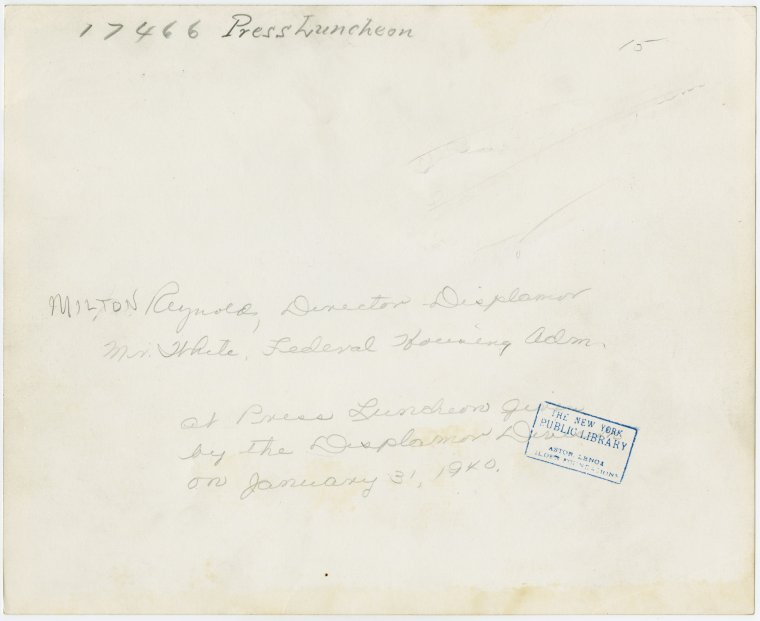 17466 Press Luncheon
15
MILTON Reynolds, Director Displamor
Mr. White, Federal Housing Adm.
at Press Luncheon
by the Displamor
on January 31, 1940.
THE NEW YORK
PUBLIC LIBRARY
ASTOR LENOX
TILDEN FOUNDATIONS